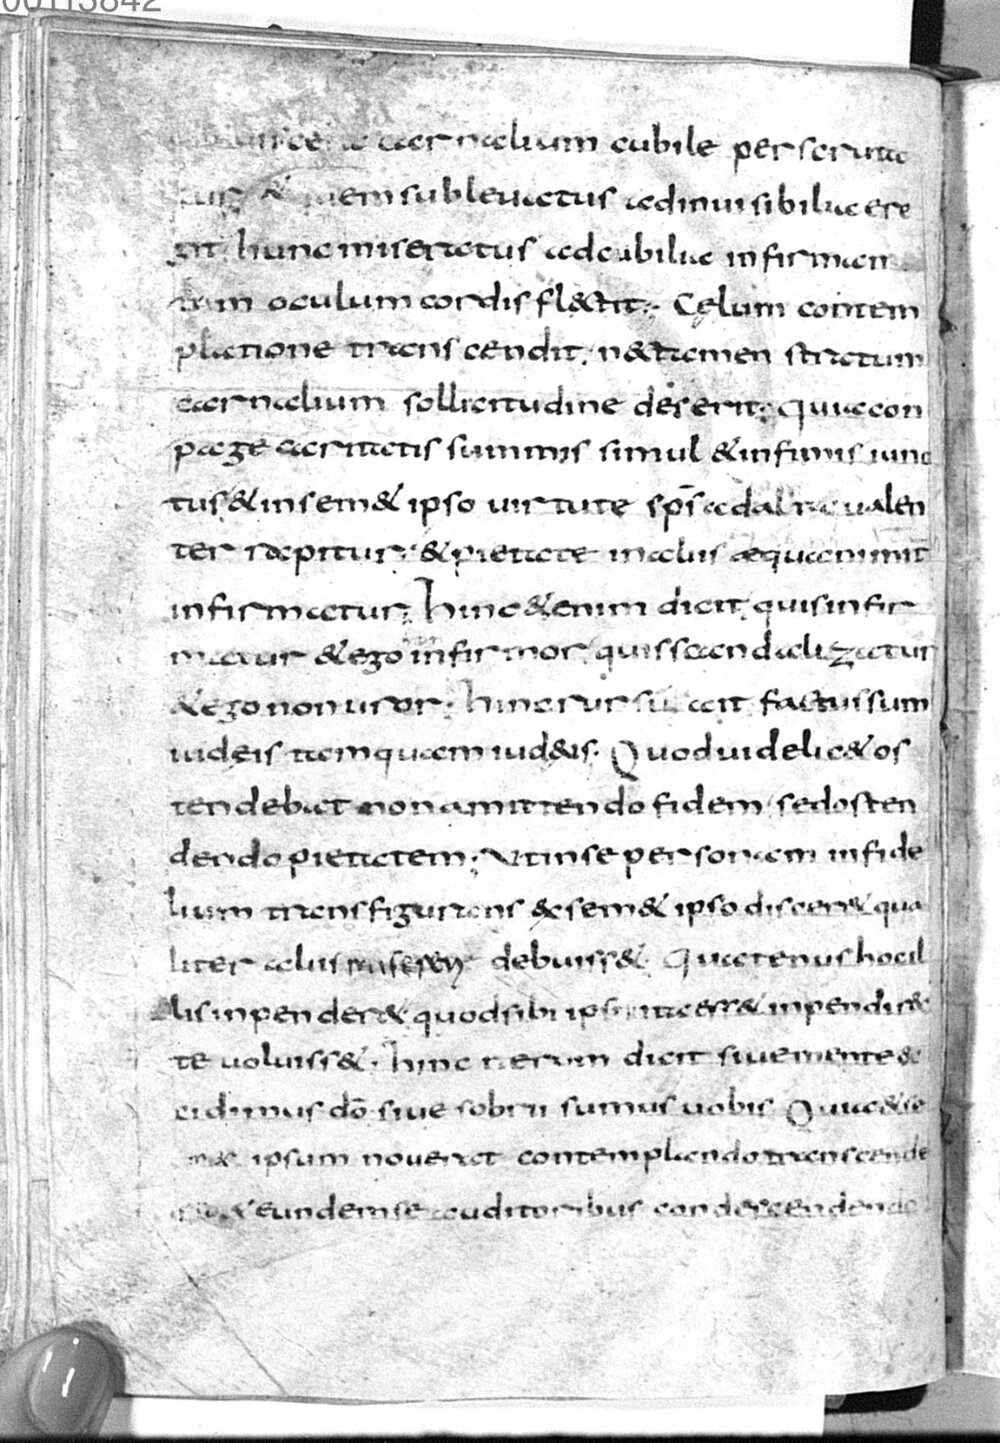 00113842
carnalium cubile perscruta
tur & quem subleuatus ad inuisibilia ere
git hunc miseratus ad cubilia infirman
tium oculum cordis flectit; Celum contem
platione transcendit, n& tamen stratum
carnalium sollicitudine deserit; quia con
page caritatis summis simul & infimis iunc
tus & in sem& ipso uirtute sps ad alta ualen
ter rapitur; & pietate in aliis aequanimit
infirmatur; Hinc &enim dicit, quis infir
matur & ego infirmor, quis scandalizatur
& ego non uror; hinc rursus ait factus sum
iudeis tamquam iud&is. Quod uidelic& os
tendebat non amittendo fidem, sed osten
dendo pietatem; Ut in se personam infide
lium transfigurans & sem& ipso discer& qua
liter aliis debuiss& Quatenus hoc il
lis inpender& quod sibi ipsi ita ess& inpendi rec
te uoluiss&. hinc iterum dicit siue mente ex
cidimus dō siue sobrii sumus uobis Quia & se
m& ipsum nouerat contemplando transcende
re & eundem se auditoribus condescendendo